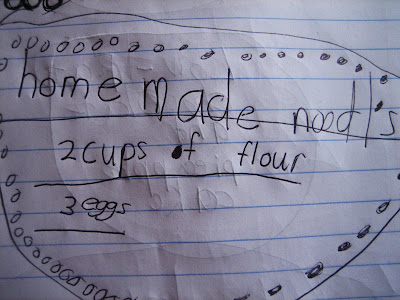 home made noodls
2 cups of flour
3 eggs